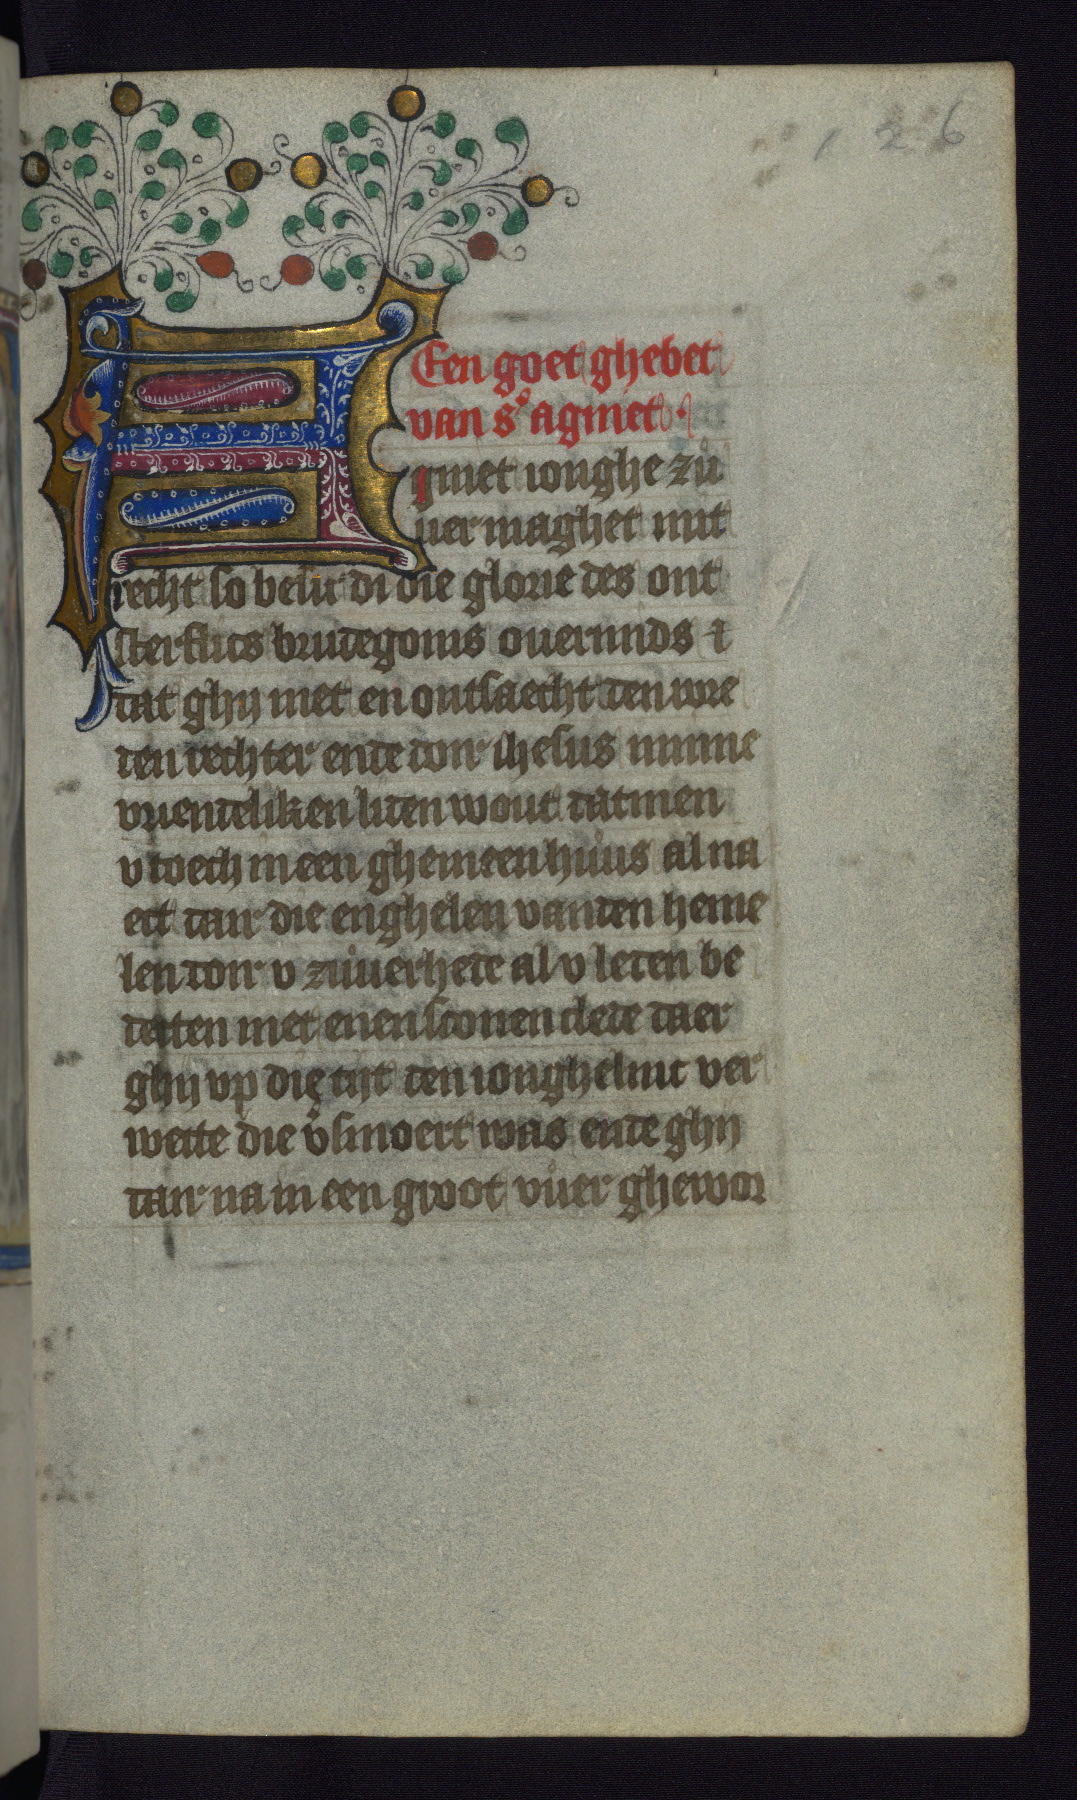 126
Een goet ghebet
van sᵉ agniet
Agniet ionghe zuͦ
uer maghet mit
recht so besit di die glorie des ont
sterflics brudegoms ouermids ⁊
dat ghij niet en ontsaecht den wre
den rechter ende dorr ihesus minne
vriendeliken liden wout datmen
v toech in een ghemeen huͦus al na
ect daer die enghelen vanden heme
len dorr v zuͦuerhede al v leden be
decten met enen sconen clede daer
ghij vp die tijt den ionghelinc ver
wecte die v̉smoert was ende ghij
daer na in een groot vuͦer ghewor